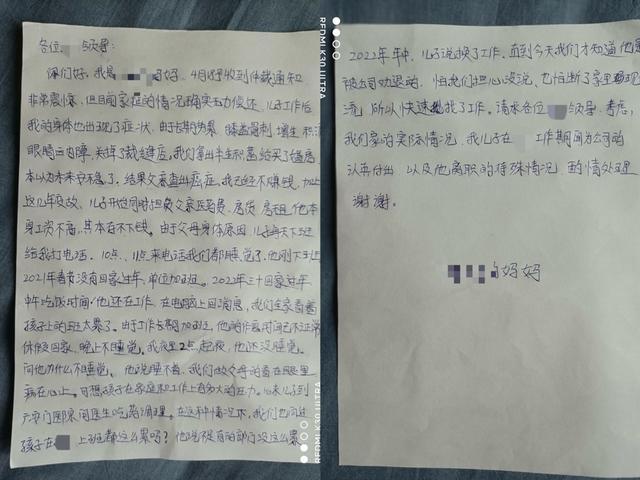 各位 领导:
你们好, 我是 妈妈. 4月18号收到仲裁通知
非常震惊, 但目前家庭的情况确实无力偿还, 儿子工作后
我的身体也出现了症状. 由于长期劳累 膝盖骨刺, 增生 积液
眼睛白内障, 关掉了裁缝店. 我们拿出半生积蓄给买了楼房
本以为未来可不愁了. 结果父亲查出癌症. 我已经不赚钱, 加上
这几年疫故, 儿子开始同时担负父亲医药费, 房贷, 房租, 他本
身工资不高, 其本存不下钱. 由于父母身体原因 儿子每天下班
给我打电话. 10点、11点来电话我们都睡觉了, 他刚下班
2021年春节没有回家过年, 单位加班. 2022年三十回家过年
中午吃饭时间, 他还在工作, 在电脑上回消息, 我们全家看着
孩子上的班太累了. 由于工作长期加班, 他的作息时间已不正常
休假回家, 晚上不睡觉. 我夜里2点起夜, 他还没睡觉.
问他为什么不睡觉, 他说睡不着, 我们做父母的看在眼里
疼在心上. 可想孩子在家庭和工作上有多大的压力. 后来儿子到
广安门医院问医生吃药调理. 在这种情况下, 我们也问过
孩子在 上班都这么累吗? 他说他有的部门没这么累
2022年年中, 儿子说换了工作. 直到今天我们才知道他是
被公司劝退的. 怕我们担心没说, 也怕断了家里现
流, 所以快速找了工作. 请求各位 领导. 考虑,
我们家的实际情况, 我儿子在 工作期间为公司的
认真付出 以及他离职的特殊情况, 酌情处理
谢谢.
妈妈
REDMI K30 ULTRA
REDMI K30 ULTRA